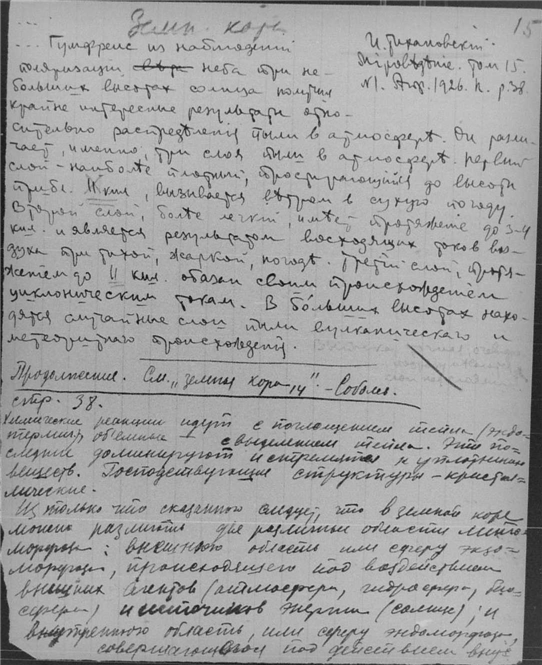 Земн. кора
15
И. Тихановский.
Мироведение. Том 15.
N1. Апр. 1926. Л. p. 38.
... Гумфреис из наблюдений
поляризации неба при не-
больших высотах солнца получил
крайне интересные результаты отно-
сительно распределения пыли в атмосферѣ. Он разли-
чает, именно, три слоя пыли в атмосферѣ. первый
слой - наиболѣе плотный, простирающийся до высоты
1 кил., вызывается вѣтром в сухую погоду.
Второй слой, болѣе легкий, имѣет протяжение до 3-4
кил. и является результатом восходящих токов воз-
духа при тихой, жаркой, погодѣ. Третий слой, протя-
жением до 11 кил. обязан своим происхождением
циклоническим токам. В бо́льших высотах нахо-
дятся случайные слои пыли вулканического и
метеоритного происхождения.
Продолжение. См. „земная кора 14". - Соболев.
стр. 38.
Химические реакции идут с поглощением тепла (эндо-
термия), объемная с выделением тепла. Эти по-
следние доминируют и стремятся к уплотнению
веществ. Господствующие структуры - кристал-
лические.
Из только что сказанного следует, что в земной коре
можно различить две различные области лито-
морфоза: внешнюю область или сферу экзо-
морфоза, происходящего под воздействием
внешних агентов (атмосфера, гидросфера, био-
сфера) и источников энергии (солнце); и
внутреннюю область, или сферу эндоморфоза,
совершающегося под действием внут